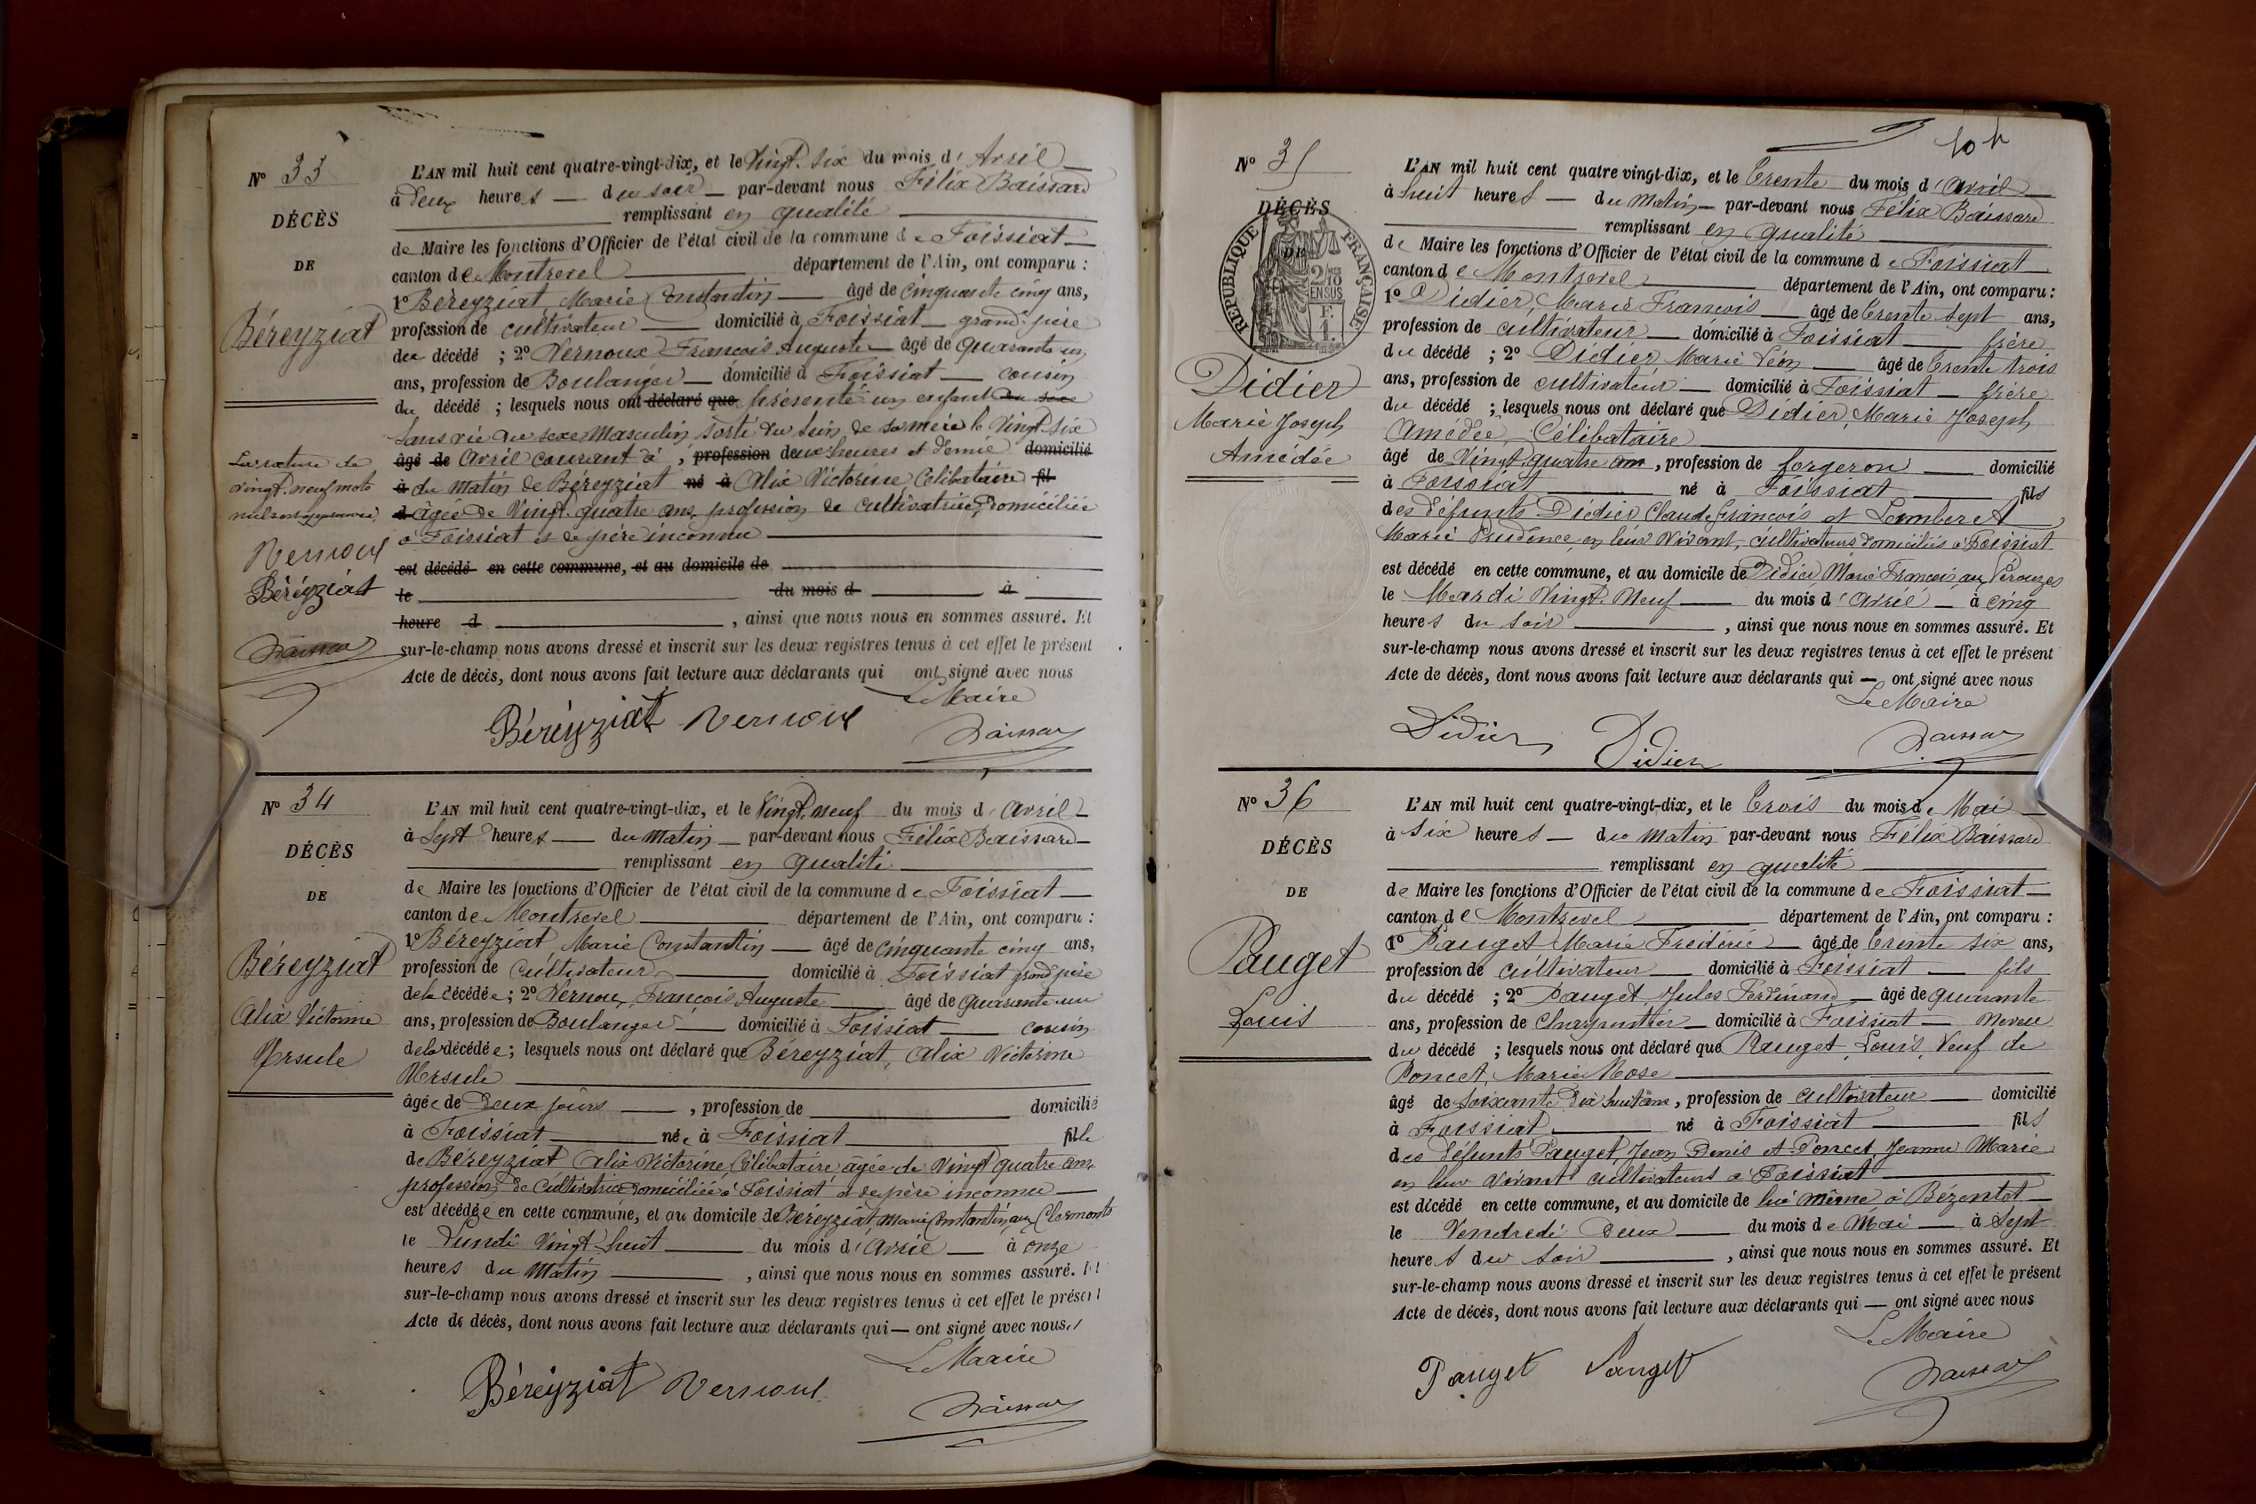 N° 33
DÉCÈS
DE
Béreyziat
La rature de
vingt-neuf mots
nuls est approuvée
Vernoux
Béréyziat
L'AN mil huit cent quatre-vingt-dix, et le Vingt-six du mois d'Avril
à Deux heures du soir par-devant nous Félix Baissard
remplissant en qualité
de Maire les fonctions d'Officier de l'état civil de la commune de Foissiat
canton de Montrevel département de l'Ain, ont comparu :
1° Béreyziat, Marie Constantin âgé de cinquante cinq ans,
profession de cultivateur domicilié à Foissiat grand-père
du décédé ; 2° Vernoux François Auguste âgé de quarante un
ans, profession de Boulanger domicilié à Foissiat cousin
du décédé ; lesquels nous ont déclaré que présenté un enfant du sexe
sans vie du sexe Masculin sorti du sein de sa mère le Vingt-six
âgé de Avril courant à , profession deux heures et demie domicilié
à du Matin de Béreyziat né à Alix Victorine Célibataire fil
d âgée de Vingt-quatre ans, profession de cultivatrice, domiciliée
à Foissiat et de père inconnu
est décédé en cette commune, et au domicile de
le du mois d à
heure d , ainsi que nous nous en sommes assuré. Et
sur-le-champ nous avons dressé et inscrit sur les deux registres tenus à cet effet le présent
Acte de décès, dont nous avons fait lecture aux déclarants qui ont signé avec nous
Le Maire
Béréyziat Vernoux Baissard
N° 34
DÉCÈS
DE
Béreyziat
Alix Victorine
Ursule
L'AN mil huit cent quatre-vingt-dix, et le Vingt-neuf du mois d'Avril
à Sept heures du Matin par-devant nous Félix Baissard
remplissant en qualité
de Maire les fonctions d'Officier de l'état civil de la commune de Foissiat
canton de Montrevel département de l'Ain, ont comparu :
1° Béreyziat Marie Constantin âgé de cinquante cinq ans,
profession de Cultivateur domicilié à Foissiat grand-père
de la décédée ; 2° Vernoux, François Auguste âgé de quarante-un
ans, profession de Boulanger domicilié à Foissiat cousin
de la décédée ; lesquels nous ont déclaré que Béreyziat, Alix Victorine
Ursule
âgée de Deux jours , profession de domicilié
à Foissiat née à Foissiat fille
de Béreyziat Alix Victorine, Célibataire âgée de Vingt quatre ans
profession de Cultivatrice domiciliée à Foissiat et de père inconnu
est décédée en cette commune, et au domicile de Béreyziat, Marie Constantin, aux Clermonts
le Lundi Vingt-huit du mois d'Avril à onze
heures du Matin , ainsi que nous nous en sommes assuré. Et
sur-le-champ nous avons dressé et inscrit sur les deux registres tenus à cet effet le présent
Acte de décès, dont nous avons fait lecture aux déclarants qui ont signé avec nous
Le Maire
Béréyziat Vernoux Baissard
N° 35
DÉCÈS
DE
RÉPUBLIQUE FRANÇAISE
2/10 EN SUS
F.
1.
Didier
Marie Joseph
Amédée
L'AN mil huit cent quatre vingt-dix, et le Trente du mois d'Avril
à huit heures du Matin par-devant nous Félix Baissard
remplissant en qualité
de Maire les fonctions d'Officier de l'état civil de la commune de Foissiat
canton de Montrevel département de l'Ain, ont comparu :
1° Didier, Marie François âgé de Trente sept ans,
profession de cultivateur domicilié à Foissiat frère
du décédé ; 2° Didier, Marie Léon âgé de Trente trois
ans, profession de cultivateur domicilié à Foissiat frère
du décédé ; lesquels nous ont déclaré que Didier, Marie Joseph
Amédée, Célibataire
âgé de Vingt-quatre ans , profession de forgeron domicilié
à Foissiat né à Foissiat fils
des défunts Didier Claude François et Lamberet
Marie Prudence, en leur Vivant, cultivateurs domiciliés à Foissiat
est décédé en cette commune, et au domicile de Didier Marie François, aux Perouzes
le Mardi Vingt-Neuf du mois d'Avril à cinq
heures du soir , ainsi que nous nous en sommes assuré. Et
sur-le-champ nous avons dressé et inscrit sur les deux registres tenus à cet effet le présent
Acte de décès, dont nous avons fait lecture aux déclarants qui ont signé avec nous
Le Maire
Didier Didier Baissard
N° 36
DÉCÈS
DE
Pauget
Louis
L'AN mil huit cent quatre-vingt-dix, et le Trois du mois de Mai
à six heures du Matin par-devant nous Félix Baissard
remplissant en qualité
de Maire les fonctions d'Officier de l'état civil de la commune de Foissiat
canton de Montrevel département de l'Ain, ont comparu :
1° Pauget Marie Frédéric âgé de Trente six ans,
profession de cultivateur domicilié à Foissiat fils
du décédé ; 2° Pauget, Jules Ferdinand âgé de quarante
ans, profession de Charpentier domicilié à Foissiat Neveu
du décédé ; lesquels nous ont déclaré que Pauget, Louis, Veuf de
Poncet, Marie Rose
âgé de soixante dix huit ans, profession de cultivateur domicilié
à Foissiat né à Foissiat fils
des défunts Pauget, Jean Denis et Poncet, Jeanne Marie
en leur Vivant cultivateurs à Foissiat
est décédé en cette commune, et au domicile de lui même à Bézentet
le Vendredi Deux du mois de Mai à Sept
heures du soir , ainsi que nous nous en sommes assuré. Et
sur-le-champ nous avons dressé et inscrit sur les deux registres tenus à cet effet le présent
Acte de décès, dont nous avons fait lecture aux déclarants qui ont signé avec nous
Le Maire
Pauget Pauget Baissard